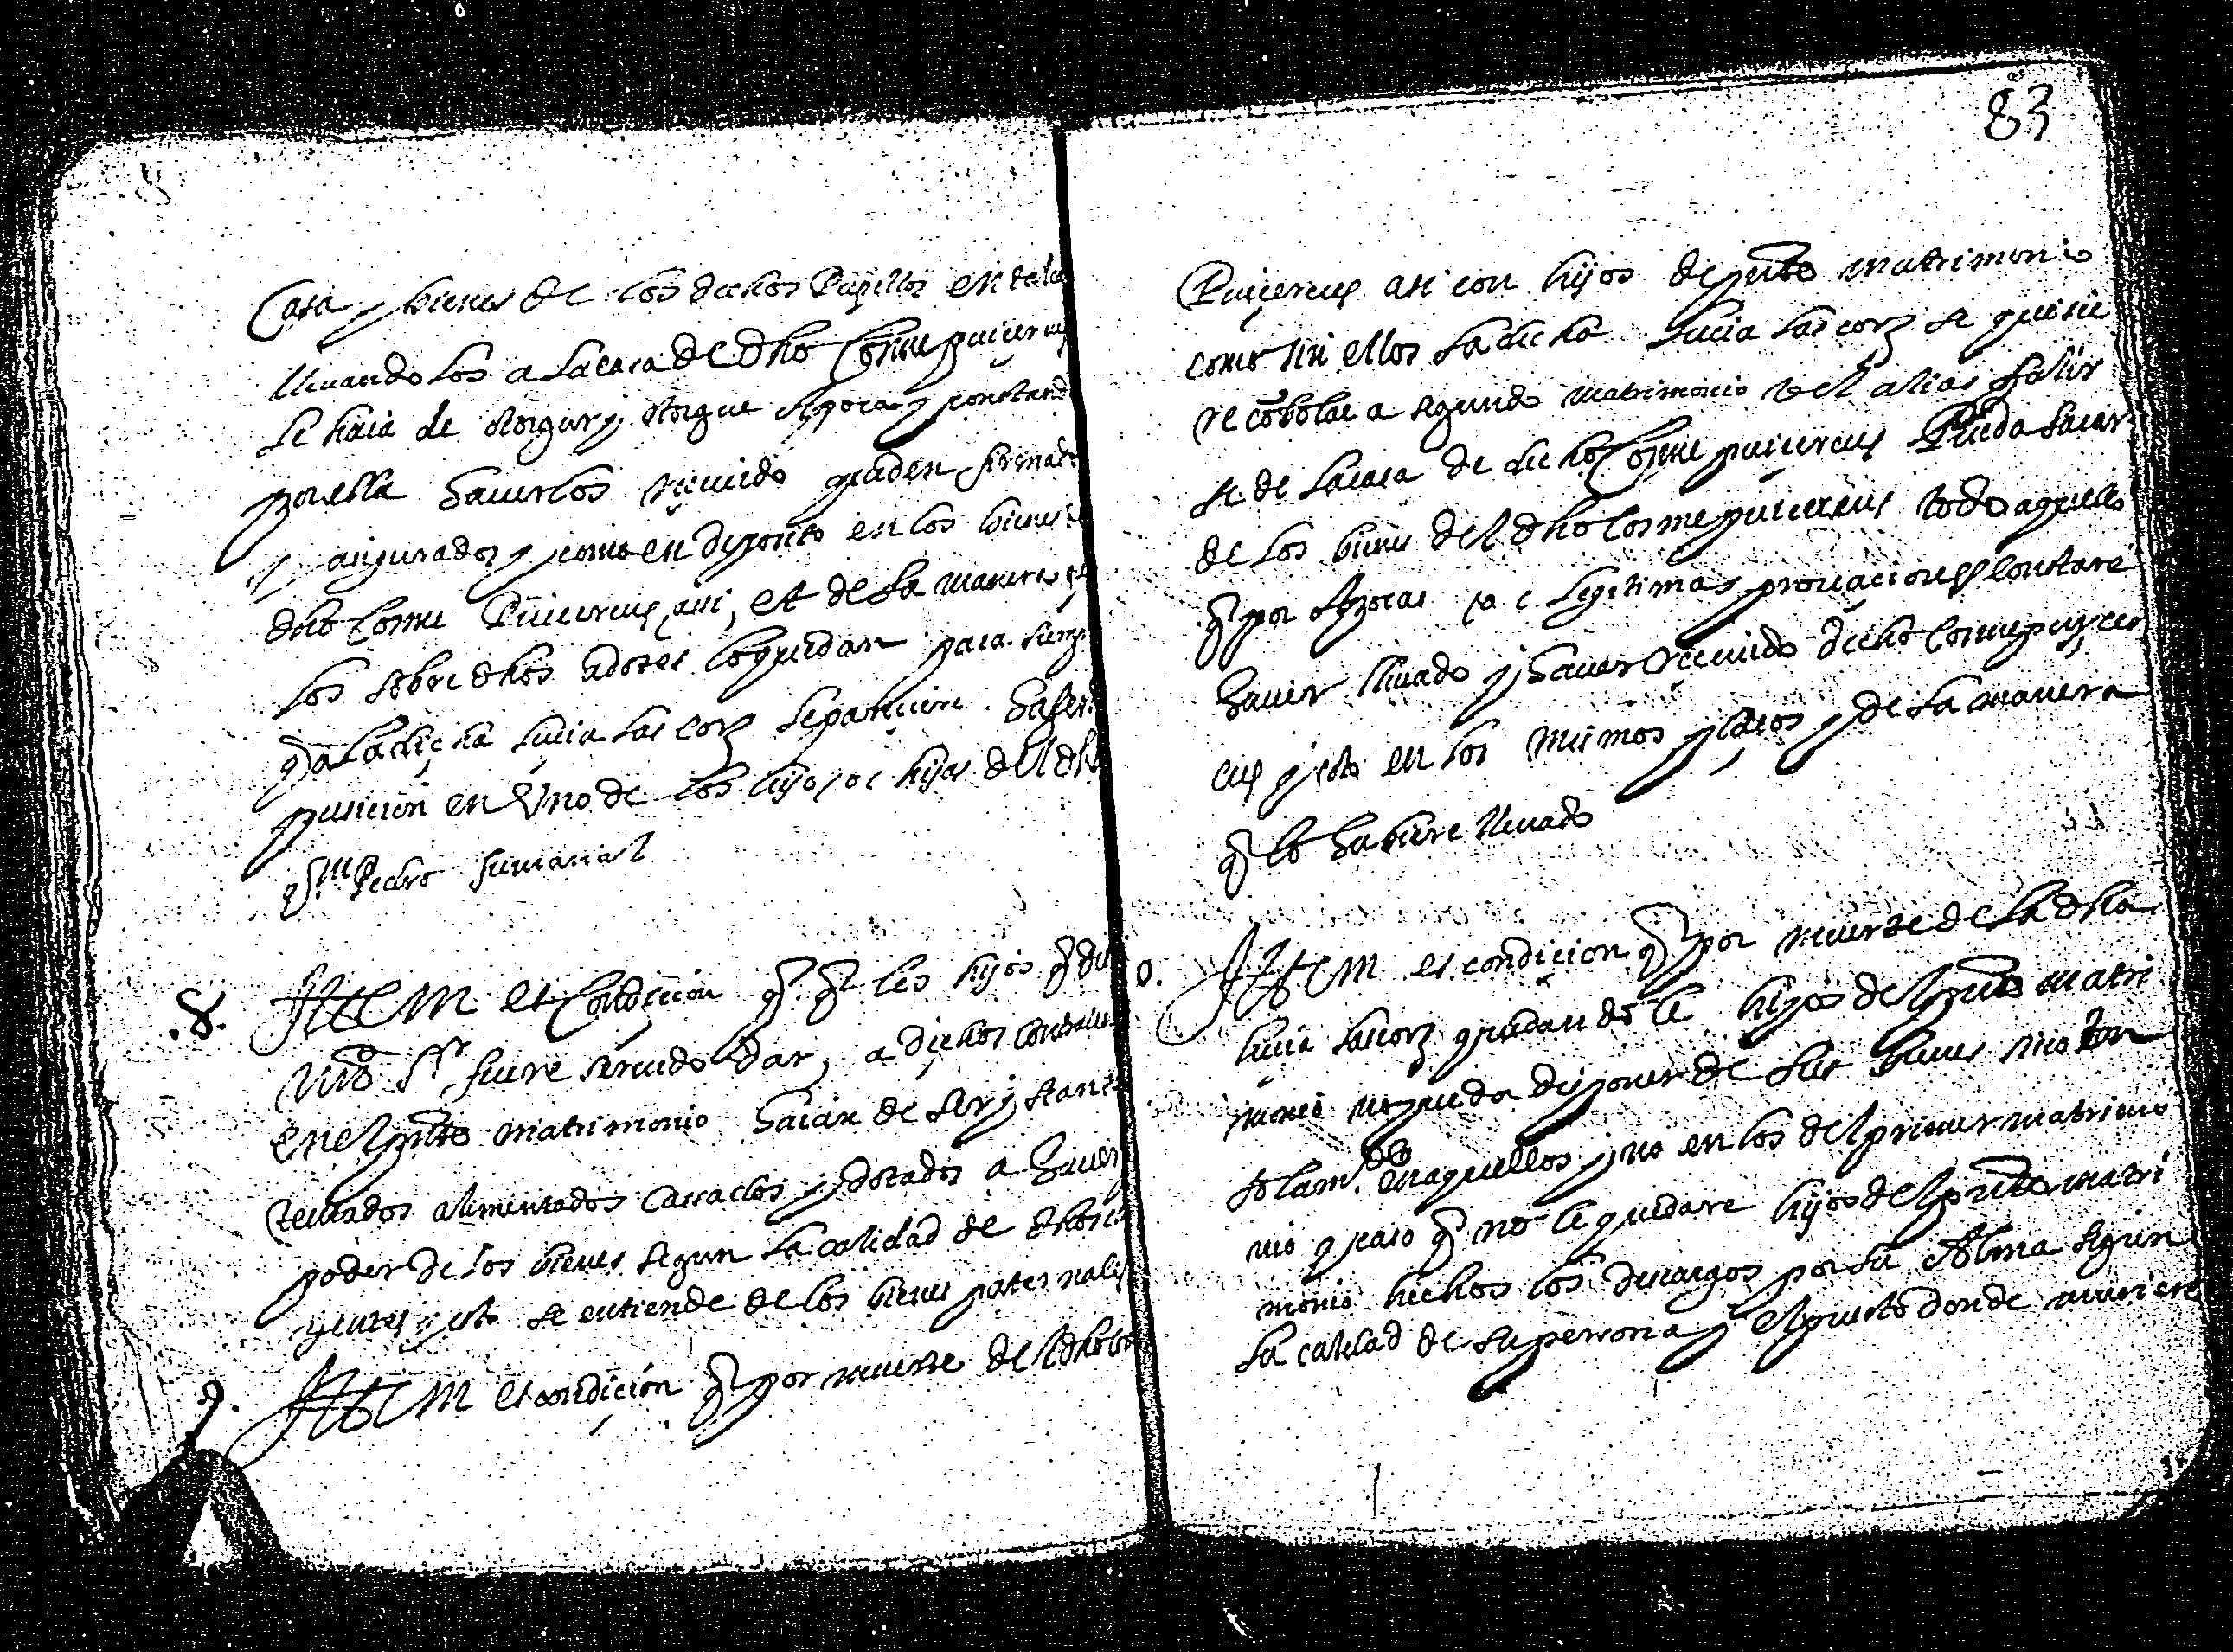 Casa y bienes de los dichos Pupillos en
lleuandolos a la casa de dho Cosme puicercus
se haia de otorgar y otorgue Apoca y constando
por ella hauerlos reciuido queden firmado
y asigurados y como en deposito en los bienes
dho Cosme Puicercus, assi, et de la manera q
los sobre dhos adores lo quedan para siemp
q a la dicha lucia lascorz le pareciere haser
pusicion en Vno de los hijos o hijas del dho
qm Pedro
.8. Ittem es Condicion q. q los hijos q di
nro Sr fuere seruido dar, a dichos contra
en el pnte matrimonio haian de ser y
tentados alimentados Cassados y dotados a hauer y
poder de los bienes segun la calidad de dhos
y esto se entiende de los bienes paternales
9. Ittem es condicion q por muerte del dho
83
Puicercus assi con hijos de pnte matrimonio
como sin ellos la dicha Lucia lascorz se quisie
re cobolar a segundo matrimonio vel alias salir
se de la casa de dicho Cosme puicercus Pueda sacar
de los bienes del dho Cosme puicercus todo aquello
q por Apocas o legitimas prouaciones Constare
hauer lleuado y hauer reciuido dicho Cosme puycer
cus y esto en los mismos plaços y de la manera
q lo hubiere lleuado
0. Ittem es condicion q por muerte de la dha
lucia lascorz quedandole hijos del pnte matri
monio no pueda disponer de sus bienes sino tan
solamte en aquellos y no en los del primer matrimo
nio y caso q no le quedare hijos del pnte matri
monio hechos los descargos por su Alma segun
la calidad de su persona y el puesto donde muriere